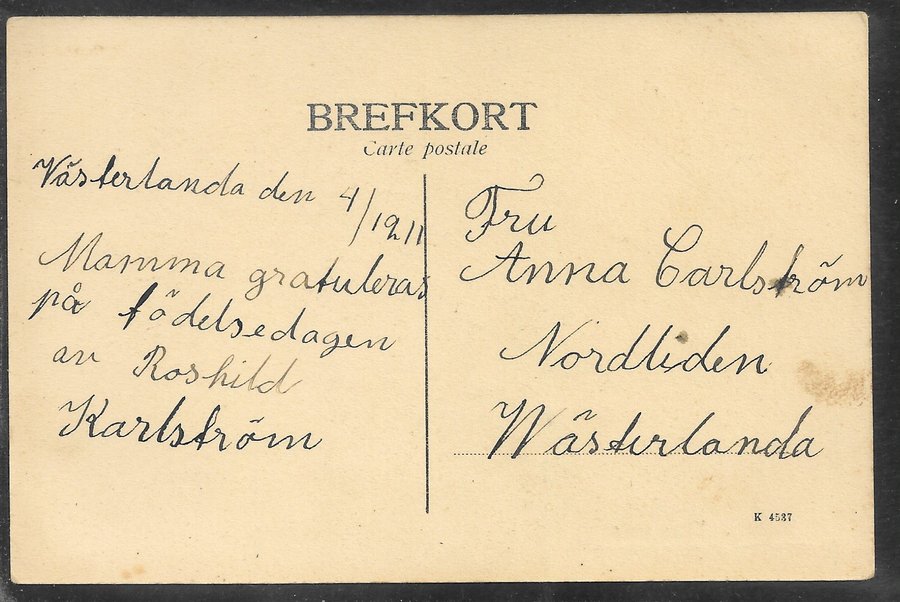 BREFKORT
Carte postale
Västerlanda den 4/1911
Mamma gratuleras
på födelsedagen
av Roshild
Karlström
Fru
Anna Carlström
Nordliden
Wästerlanda
K 4537